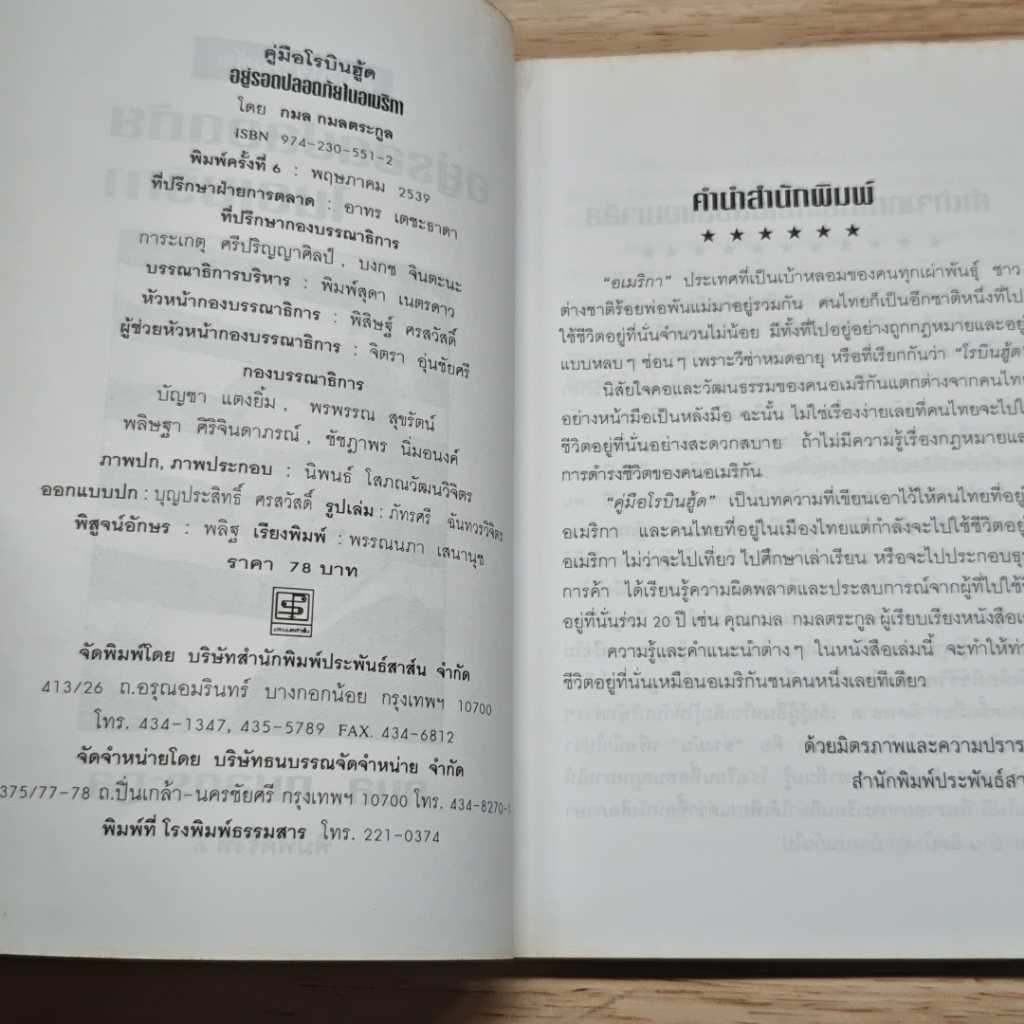 คู่มือโรบินฮู้ด
อยู่รอดปลอดภัยในอเมริกา
โดย กมล กมลตระกูล
ISBN 974-230-551-2
พิมพ์ครั้งที่ 6 : พฤษภาคม 2539
ที่ปรึกษาฝ่ายการตลาด : อาทร เตชะธาดา
ที่ปรึกษากองบรรณาธิการ
การะเกตุ ศรีปริญญาศิลป์, บงกช จินตะนะ
บรรณาธิการบริหาร : พิมพ์สุดา เนตรดาว
หัวหน้ากองบรรณาธิการ : พิสิษฐ์ ศรสวัสดิ์
ผู้ช่วยหัวหน้ากองบรรณาธิการ : จิตรา อุ่นชัยศรี
กองบรรณาธิการ
บัญชา แตงยิ้ม, พรพรรณ สุขรัตน์
พลิษฐา ศิริจินดาภรณ์, ชัชฎาพร นิ่มอนงค์
ภาพปก, ภาพประกอบ : นิพนธ์ โสภณวัฒนวิจิตร
ออกแบบปก : บุญประสิทธิ์ ศรสวัสดิ์ รูปเล่ม : ภัทรศรี ฉันทวรวิจิตร
พิสูจน์อักษร : พลิฐ เรียงพิมพ์ : พรรณนภา เสนานุช
ราคา 78 บาท
จัดพิมพ์โดย บริษัทสำนักพิมพ์ประพันธ์สาส์น จำกัด
413/26 ถ.อรุณอมรินทร์ บางกอกน้อย กรุงเทพฯ 10700
โทร. 434-1347, 435-5789 FAX. 434-6812
จัดจำหน่ายโดย บริษัทธนบรรณจัดจำหน่าย จำกัด
375/77-78 ถ.ปิ่นเกล้า-นครชัยศรี กรุงเทพฯ 10700 โทร. 434-8270-1
พิมพ์ที่ โรงพิมพ์ธรรมสาร โทร. 221-0374
คำนำสำนักพิมพ์
★ ★ ★ ★ ★ ★
"อเมริกา" ประเทศที่เป็นเบ้าหลอมของคนทุกเผ่าพันธุ์ ชาว
ต่างชาติร้อยพ่อพันแม่มาอยู่รวมกัน คนไทยก็เป็นอีกชาติหนึ่งที่ไป
ใช้ชีวิตอยู่ที่นั่นจำนวนไม่น้อย มีทั้งที่ไปอยู่อย่างถูกกฎหมายและอยู่
แบบหลบๆ ซ่อนๆ เพราะวีซ่าหมดอายุ หรือที่เรียกกันว่า "โรบินฮู้ด"
นิสัยใจคอและวัฒนธรรมของคนอเมริกันแตกต่างจากคนไทย
อย่างหน้ามือเป็นหลังมือ ฉะนั้น ไม่ใช่เรื่องง่ายเลยที่คนไทยจะไปใ
ชีวิตอยู่ที่นั่นอย่างสะดวกสบาย ถ้าไม่มีความรู้เรื่องกฎหมายและ
การดำรงชีวิตของคนอเมริกัน
"คู่มือโรบินฮู้ด" เป็นบทความที่เขียนเอาไว้ให้คนไทยที่อยู่
อเมริกา และคนไทยที่อยู่ในเมืองไทยแต่กำลังจะไปใช้ชีวิตอยู่
อเมริกา ไม่ว่าจะไปเที่ยว ไปศึกษาเล่าเรียน หรือจะไปประกอบธุร
การค้า ได้เรียนรู้ความผิดพลาดและประสบการณ์จากผู้ที่ไปใช้ชี
อยู่ที่นั่นร่วม 20 ปี เช่น คุณกมล กมลตระกูล ผู้เรียบเรียงหนังสือ
ความรู้และคำแนะนำต่างๆ ในหนังสือเล่มนี้ จะทำให้ท่า
ชีวิตอยู่ที่นั่นเหมือนอเมริกันชนคนหนึ่งเลยทีเดียว
ด้วยมิตรภาพและความปราร
สำนักพิมพ์ประพันธ์สา